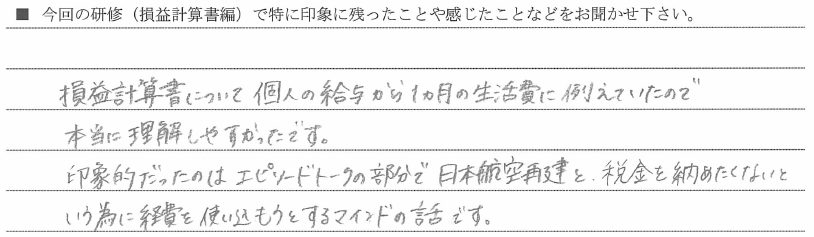 ■ 今回の研修（損益計算書編）で特に印象に残ったことや感じたことなどをお聞かせ下さい。
損益計算書について個人の給与から1カ月の生活費に例えていたので
本当に理解しやすかったです。
印象的だったのはエピソードトークの部分で日本航空再建と、税金を納めたくないと
いう為に経費を使い込もうとするマインドの話です。